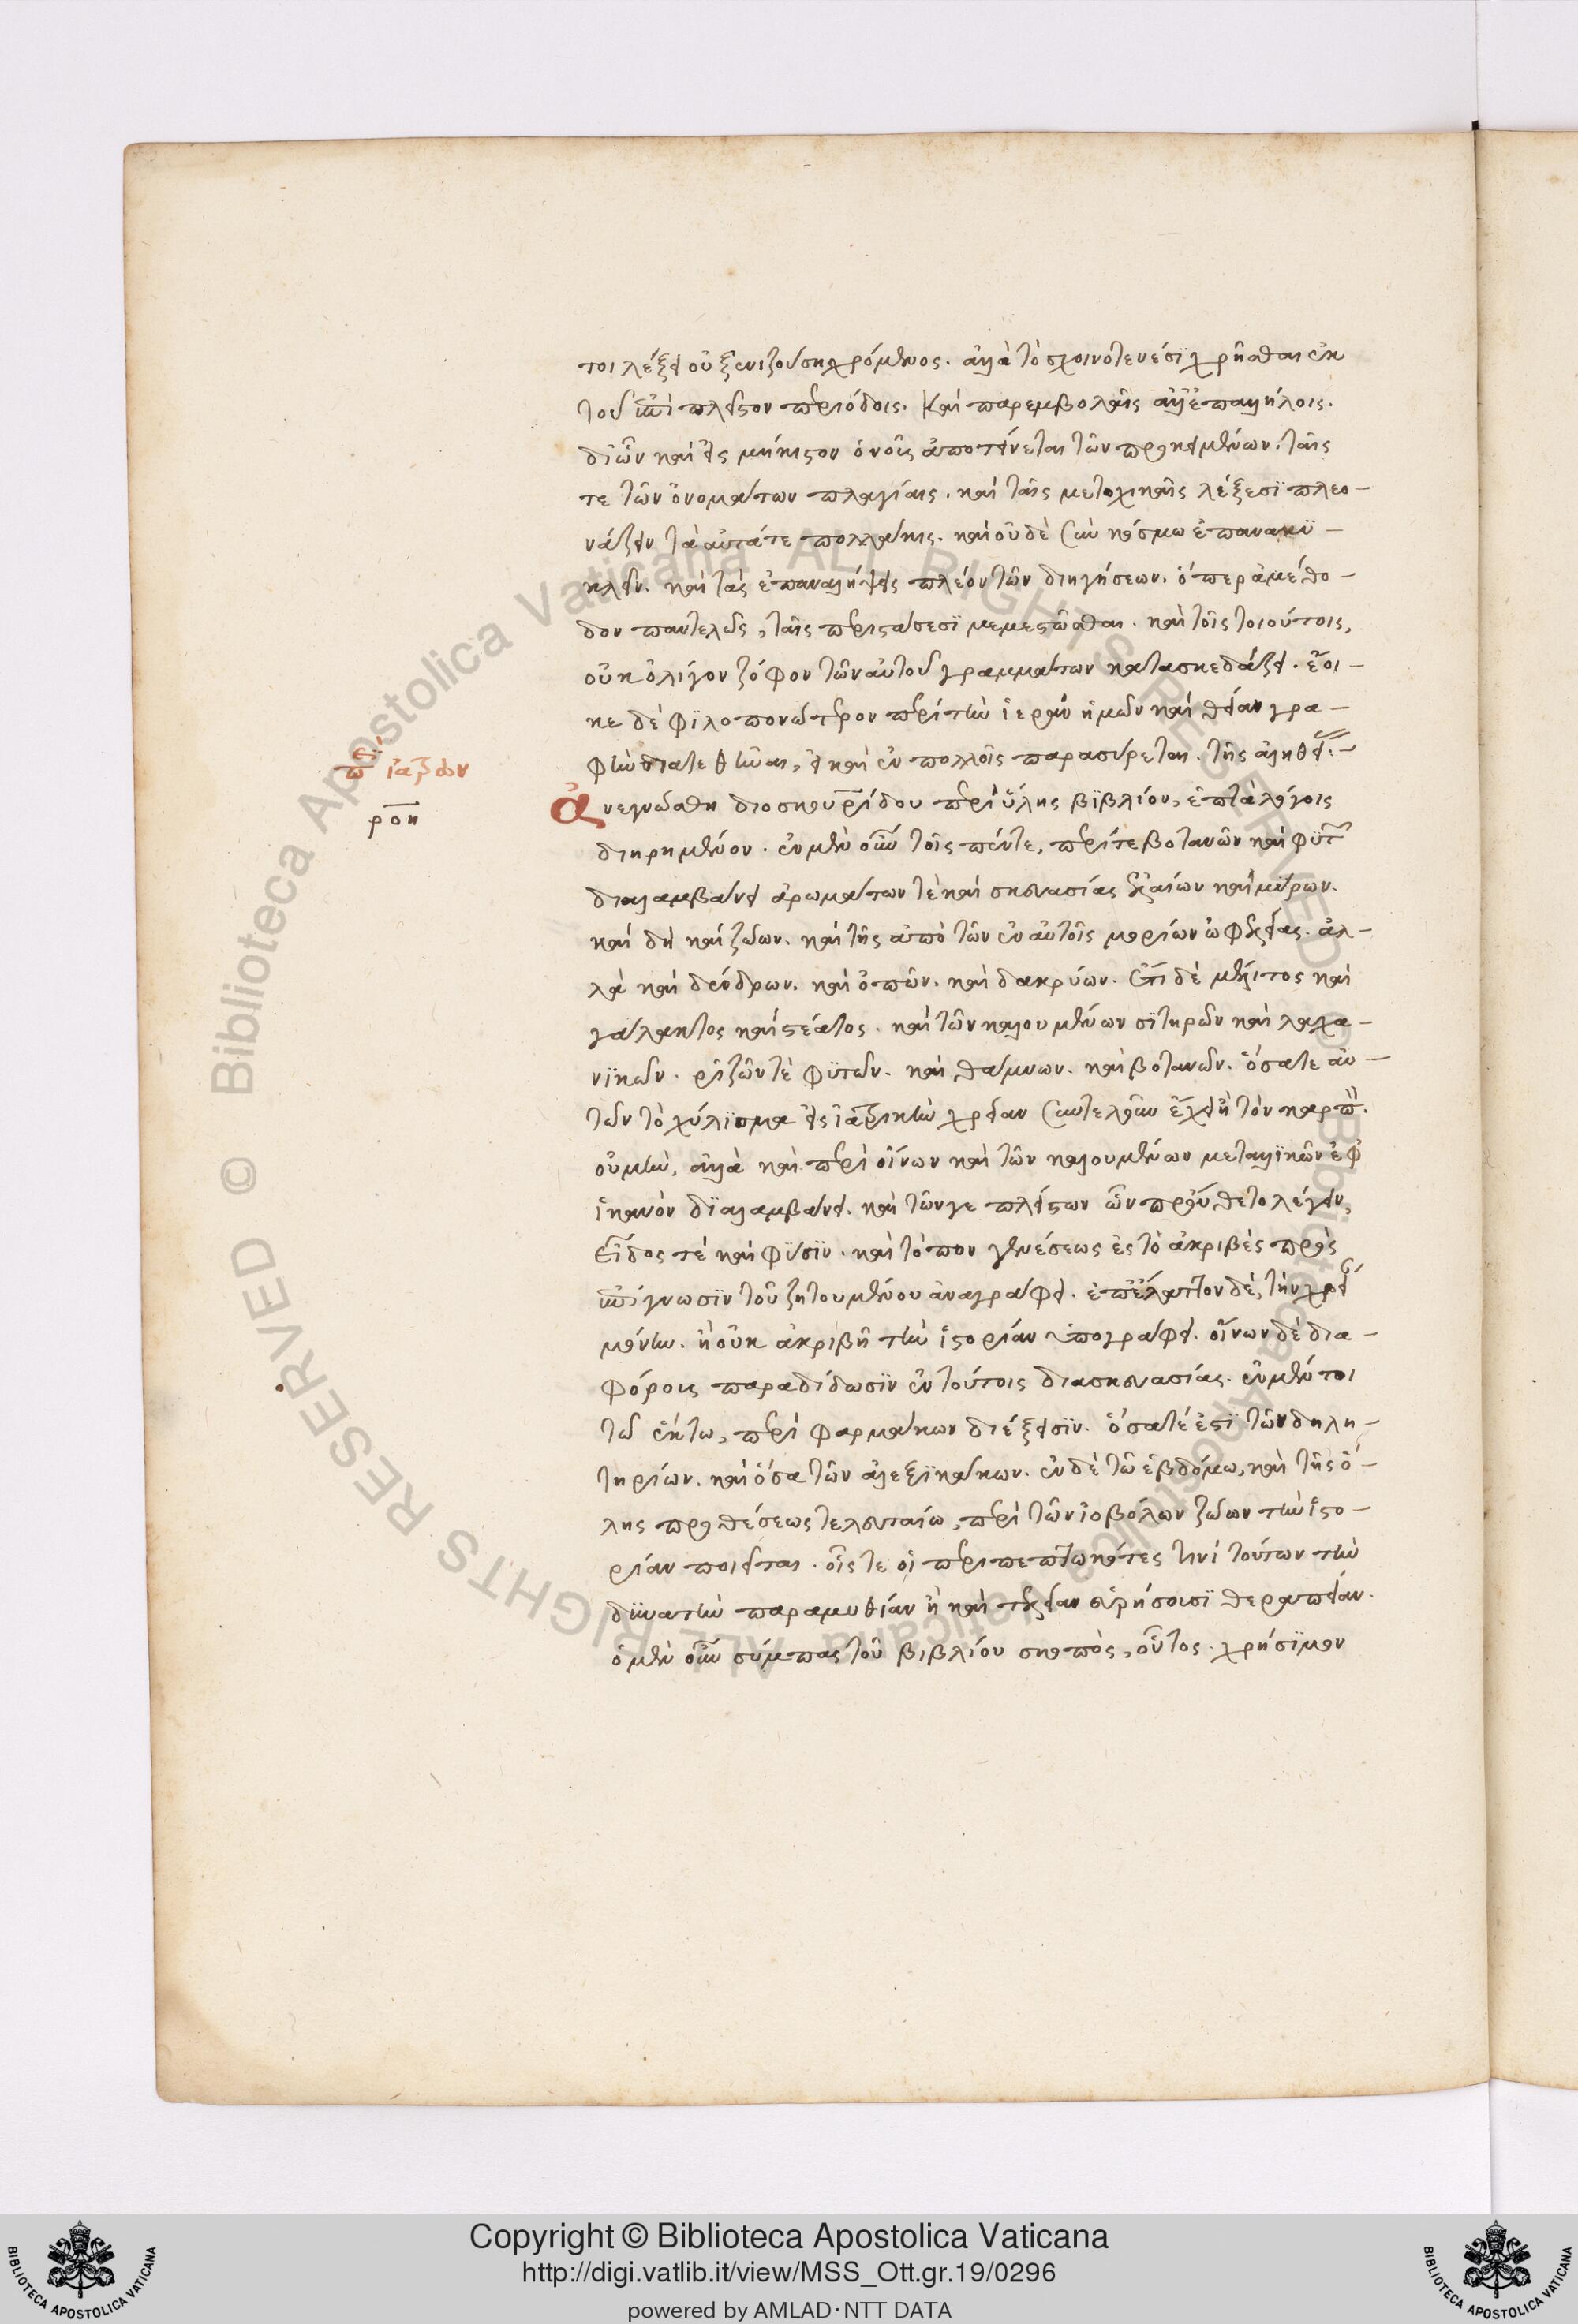 τοι λέξει οὐ ξενιζούσῃ χρόμενος. ἀλλὰ τὸ σχοινοτενέσϊ χρῆσθαι ἐκ
τοῦ ἐπὶ πλεῖστον περιόδοις. καὶ παρεμβολαῖς ἀλλεπαλλήλοις.
δι' ὧν καὶ εἰς μήκιστον ὁ νοῦς ἀποτείνεται τῶν προκειμένων. ταῖς
τε τῶν ὀνομάτων πλαγίαις. καὶ ταῖς μετοχικαῖς λέξεσϊ πλεο-
νάζειν τὰ αὐτά τε πολλάκις. καὶ οὐδὲ σὺν κόσμω ἐπανακϋ-
κλεῖν. καὶ τὰς ἐπαναλήψεις πλέον τῶν διηγήσεων. ὅπερ ἀμέθο-
δον παντελῶς, ταῖς περιστάσεσϊ μεμεστῶσθαι. καὶ τοῖς τοιούτοις,
οὐκ ὀλίγον ζόφον τῶν αὐτοῦ γραμμάτων κατασκεδάζει. ἔοι-
κε δὲ φϊλοπονώτερον περὶ τὴν ἱερὰν ἡμῶν καὶ θείαν γρα-
φὴν διατεθῆναι, εἰ καὶ ἐν πολλοῖς παρασύρεται. τῆς ἀληθεί:~
π ϊατρῶν
ροη
ἀνεγνώσθη διοσκουρίδου περὶ ὕλης βϊβλίον, ἑπτὰ λόγοις
διηρημένον. ἐν μὲν οὖν τοῖς πέντε, περί τε βοτανῶν καὶ φϋτ
διαλαμβάνει ἀρωμάτων τὲ καὶ σκευασίας ἐλαίων καὶ μύρων.
καὶ δὴ καὶ ζώων. καὶ τῆς ἀπὸ τῶν ἐν αὐτοῖς μορίων ὠφελείας. ἀλ-
λὰ καὶ δένδρων. καὶ ὀπῶν. καὶ δακρύων. ἔτι δὲ μέλιτος καὶ
γάλακτος καὶ στέατος. καὶ τῶν καλουμένων σϊτηρῶν καὶ λαχα-
νϊκῶν. ῥιζῶν τὲ φϋτῶν. καὶ θάμνων. καὶ βοτανῶν. ὅσα τε αὐ-
τῶν τὸ χύλϊσμα εἰς ἰατρικὴν χρείαν συντελοῦν ἔχει ἢ τὸν καρπ.
οὐ μὴν, ἀλλὰ καὶ περὶ οἴνων καὶ τῶν καλουμένων μεταλλϊκῶν ἐφ
ἱκανὸν δϊαλαμβάνει. καὶ τῶν γε πλείστων ὧν προὔθετο λέγειν,
εἶδος τέ καὶ φύσϊν. καὶ τόπον γενέσεως ἐς τὸ ἀκριβὲς πρὸς
ἐπίγνωσϊν τοῦ ζητουμένου ἀναγράφει. ἐπ' ἔλαττον δὲ, τὴν χρεί
μόνην. ἢ οὐκ ἀκριβῆ τὴν ἱστορίαν ὑπογράφει. οἴνων δὲ δια-
φόροις παραδίδωσϊν ἐν τούτοις διασκευασίας. ἐν μέντοι
τῶ ἕκτω, περὶ φαρμάκων διέξεισϊν. ὅσα τέ ἐστϊ τῶν δηλη-
τηρίων. καὶ ὅσα τῶν ἀλεξϊκάκων. ἐν δὲ τῶ ἑβδόμω, καὶ τῆς ὅ-
λης προθέσεως τελευταίω, περὶ τῶν ἰοβόλων ζώων τὴν ἱστο-
ρίαν ποιεῖται. οἷς τε οἱ περιπεπτωκότες τινὶ τούτων τὴν
δϋνατὴν παραμυθίαν ἢ καὶ τελείαν εὑρήσουσϊ θεραπείαν.
ὁ μὲν οὖν σύμπας τοῦ βιβλίου σκοπὸς, οὗτος. χρήσϊμον
Copyright © Biblioteca Apostolica Vaticana
http://digi.vatlib.it/view/MSS_Ott.gr.19/0296
powered by AMLAD·NTT DATA
BIBLIOTECA APOSTOLICA VATICANA
BIBLIOTECA APOSTOLICA VATICANA
© Biblioteca Apostolica Vaticana ALL RIGHTS RESERVED
© Biblioteca Apostolica Vaticana ALL RIGHTS RESERVED